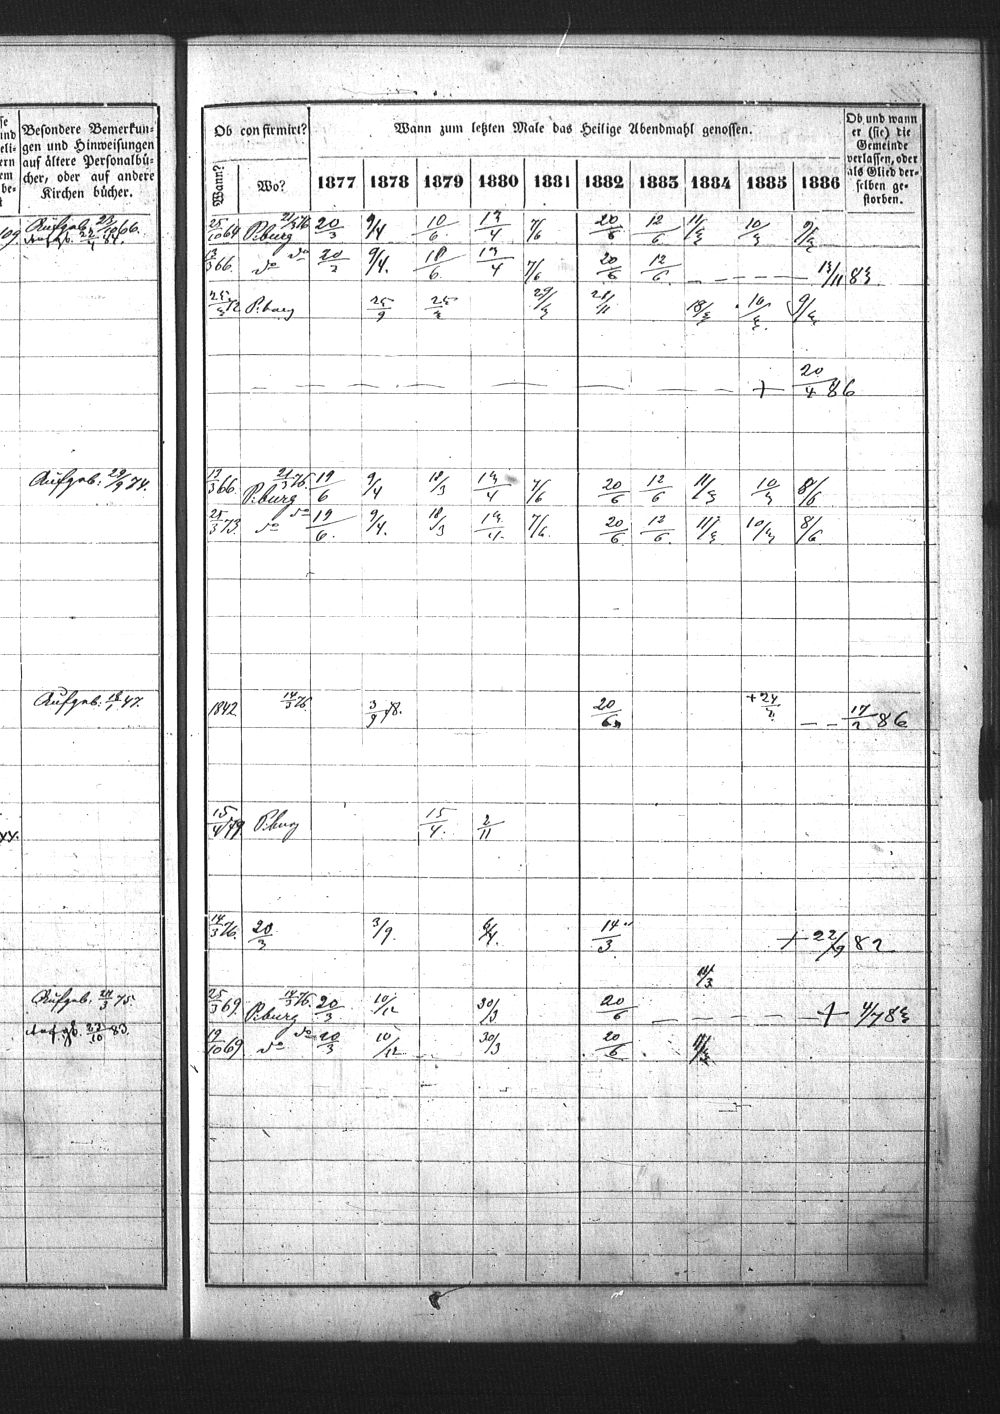 Besondere Bemerkun-
gen und Hinweisungen
auf ältere Personalbü-
cher, oder auf andere
Kirchen bücher.
Ob confirmirt?
Wann zum letzten Male das Heilige Abendmahl genossen.
Ob und wann
er (sie) die
Gemeinde
verlassen, oder
als Glied der-
selben ge-
storben.
Wann?
Wo?
1877 1878 1879 1880 1881 1882 1883 1884 1885 1886
109.
25/10 69 P.burg 20/3 9/4 10/6 13/4 7/6 20/6 12/6 11/3 10/3 9/3
13/3 66. do do 20/3 9/4. 10/6 13/4 7/6 20/6 12/6 – – – – 13/11 83.
25/3 72 P.burg 25/9 25/3 29/3 21/11 18/3 10/3 9/3
– – – – – – – – – + 20/4 86
Aufgeb. 29/9 74.
13/3 66. P.burg 21/3 76. 19/6 9/4 18/3 13/4 7/6 20/6 12/6 11/3 10/3 8/6
25/3 73. do do 19/6. 9/4. 18/3 13/4. 7/6. 20/6 12/6. 11/3 10/3 8/6.
Aufgeb. 18/1 47.
1842 14/3 76. 3/9 78. 20/6 + 24/2. – – 17/2 86
15/4 79 P.burg 15/4. 2/11
14/3 76. 20/3 3/9. 6/4. 14/3. + 22/9 82
11/3
Aufgeb. 24/3 75.
25/3 69. P.burg 14/3 76. 20/3 10/12 30/3 20/6 – – – – + 4/7 83
Aufgb. 23/10 83.
19/10 69 do do 20/3 10/12 30/3 20/6 11/3